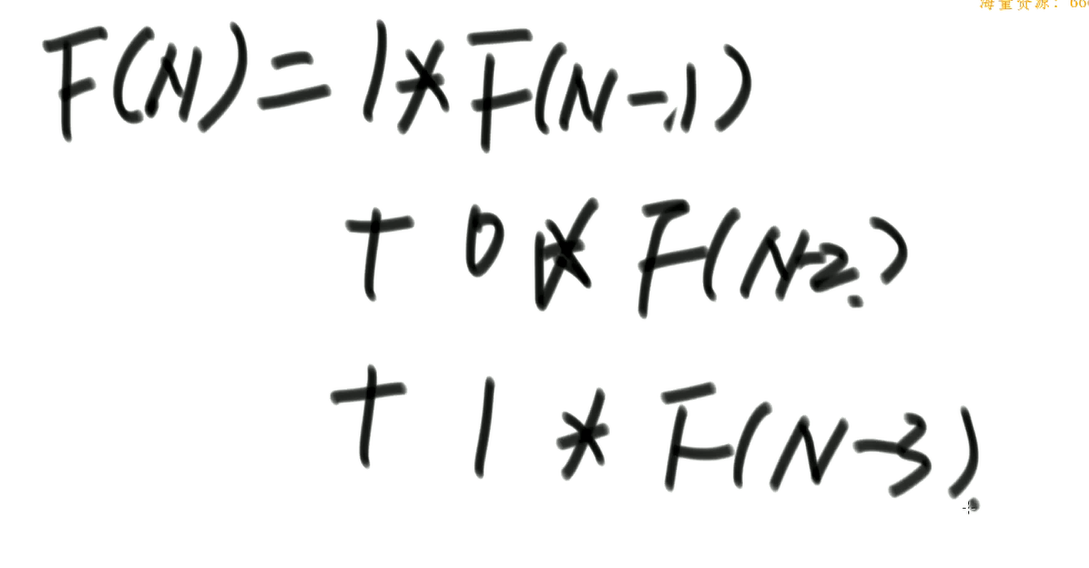 海量资源：66
F(N)=1*F(N-1)
+ 0 * F(N-2)
+ 1 * F(N-3)